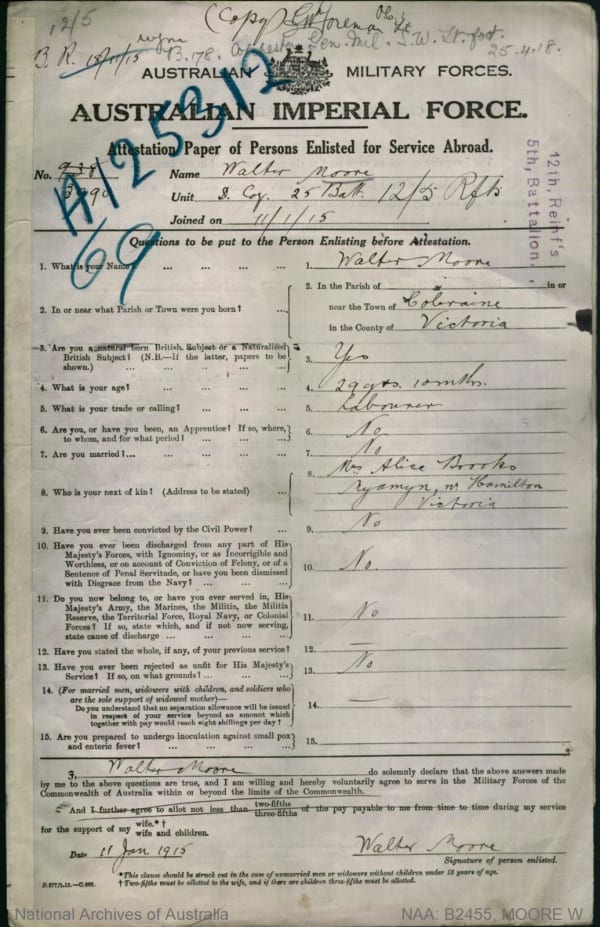 12/5
(Copy)
B.R. 15/11/15
B.178.
Gen. Mil.
25.4.18.
AUSTRALIAN MILITARY FORCES.
AUSTRALIAN IMPERIAL FORCE.
Attestation Paper of Persons Enlisted for Service Abroad.
H125312
69
12th, Reinf's
5th, Battalion,
No. 3990
Name Walter Moore
Unit D. Coy. 25 Batt. 12/5 Rfts
Joined on 11/1/15
Questions to be put to the Person Enlisting before Attestation.
1. What is your Name? ... ... ... ...
1. Walter Moore
2. In or near what Parish or Town were you born?
2. In the Parish of in or
near the Town of Coleraine
in the County of Victoria
3. Are you a natural born British Subject or a Naturalised
British Subject? (N.B.—If the latter, papers to be
shown.)
3. Yes
4. What is your age? ... ... ... ...
4. 29 yrs. 10 mths.
5. What is your trade or calling? ... ... ...
5. Labourer
6. Are you, or have you been, an Apprentice? If so, where,
to whom, and for what period? ... ... ...
6. No
7. Are you married?... ... ... ... ...
7. No
8. Who is your next of kin? (Address to be stated) ...
8. Mrs Alice Brooks
Nr. Hamilton
Victoria
9. Have you ever been convicted by the Civil Power? ...
9. No
10. Have you ever been discharged from any part of His
Majesty's Forces, with Ignominy, or as Incorrigible and
Worthless, or on account of Conviction of Felony, or of a
Sentence of Penal Servitude, or have you been dismissed
with Disgrace from the Navy? ... ... ...
10. No.
11. Do you now belong to, or have you ever served in, His
Majesty's Army, the Marines, the Militia, the Militia
Reserve, the Territorial Force, Royal Navy, or Colonial
Forces? If so, state which, and if not now serving,
state cause of discharge ... ... ... ...
11. No
12. Have you stated the whole, if any, of your previous service?
12. —
13. Have you ever been rejected as unfit for His Majesty's
Service? If so, on what grounds? ... ... ...
13. No
14. (For married men, widowers with children, and soldiers who
are the sole support of widowed mother)—
Do you understand that no separation allowance will be issued
in respect of your service beyond an amount which
together with pay would reach eight shillings per day?
14. —
15. Are you prepared to undergo inoculation against small pox
and enteric fever? ... ... ... ...
15.
I, Walter Moore do solemnly declare that the above answers made
by me to the above questions are true, and I am willing and hereby voluntarily agree to serve in the Military Forces of the
Commonwealth of Australia within or beyond the limits of the Commonwealth.
And I further agree to allot not less than two-fifths three-fifths of the pay payable to me from time to time during my service
for the support of my wife.*† wife and children.
Date 11 Jan. 1915
Walter Moore
Signature of person enlisted.
*This clause should be struck out in the case of unmarried men or widowers without children under 18 years of age.
† Two-fifths must be allotted to the wife, and if there are children three-fifths must be allotted.
National Archives of Australia
NAA: B2455, MOORE W